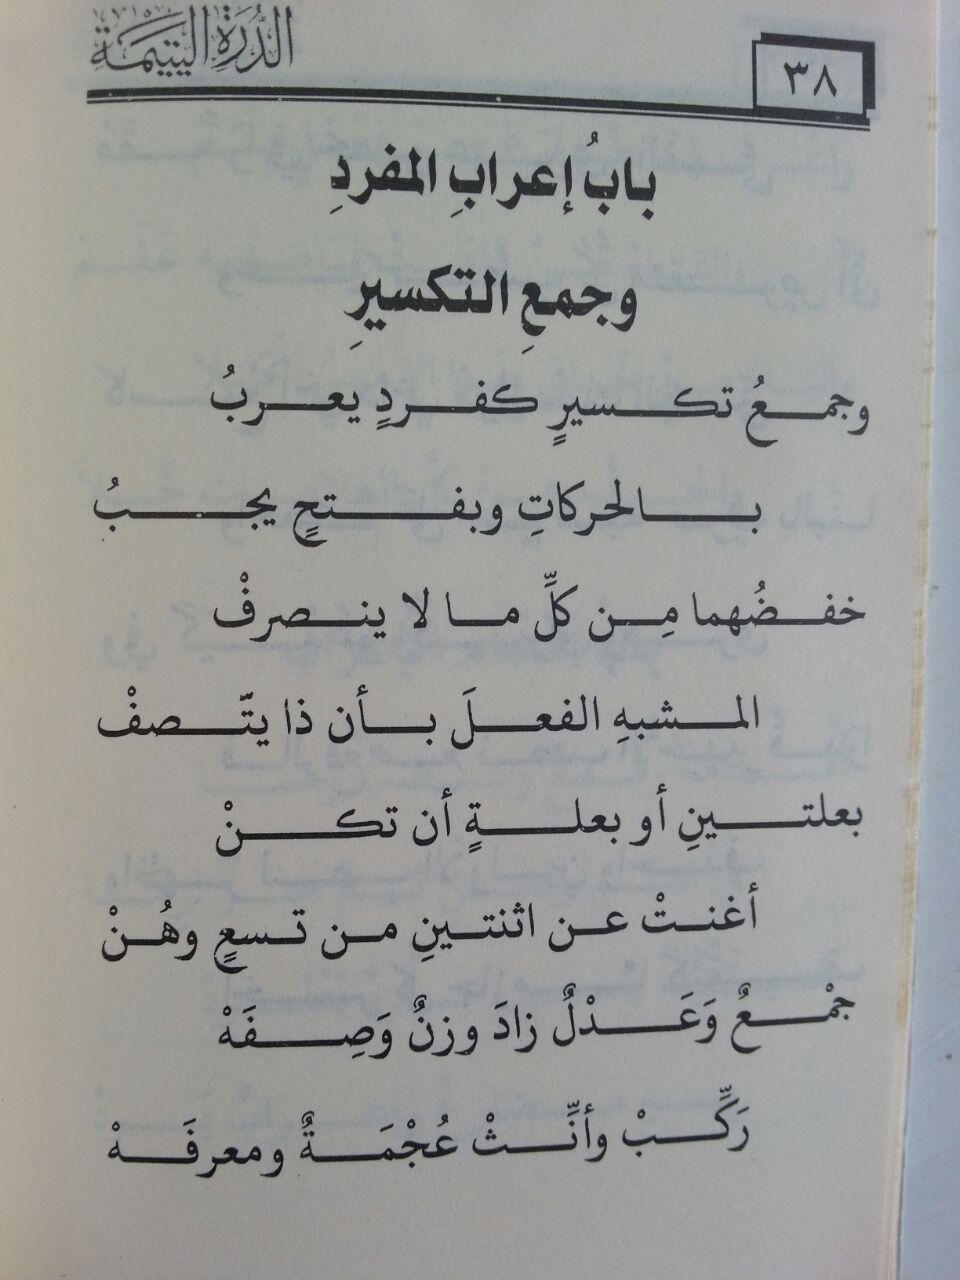 الدُّرَةِ اليتيمَةِ
٣٨
بابُ إعرابِ المفردِ
وجمعِ التكسيرِ
وجمعُ تكسيرٍ كفردٍ يعربُ
بالحركاتِ وبفتحٍ يجبُ
خفضُهما مِن كلِّ ما لا ينصرفْ
المشبهِ الفعلَ بأن ذا يتّصفْ
بعلتينِ أو بعلةٍ أن تكنْ
أغنتْ عن اثنتينِ من تسعٍ وهُنْ
جمْعٌ وَعَدْلٌ زادَ وزنٌ وَصِفَهْ
رَكِّبْ وأنِّثْ عُجْمَةٌ ومعرفَهْ